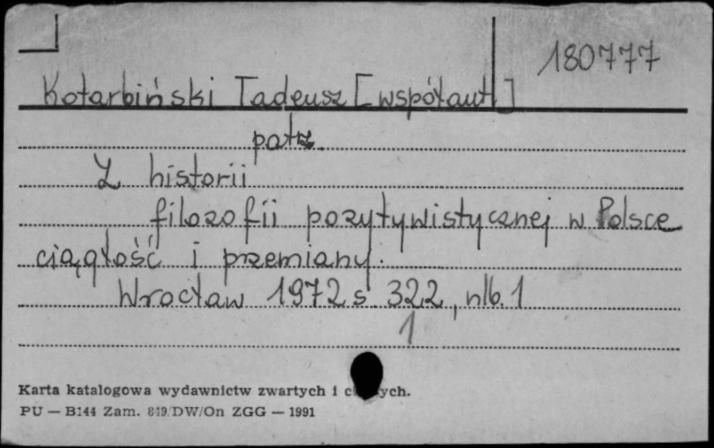 180777
Kotarbiński Tadeusz [współaut.]
patrz
Z historii
filozofii pozytywistycznej w Polsce
ciągłość i przemiany.
Wrocław 1972 s. 322, nlb. 1
1
Karta katalogowa wydawnictw zwartych i
PU — B144 Zam. 819/DW/On ZGG — 1991